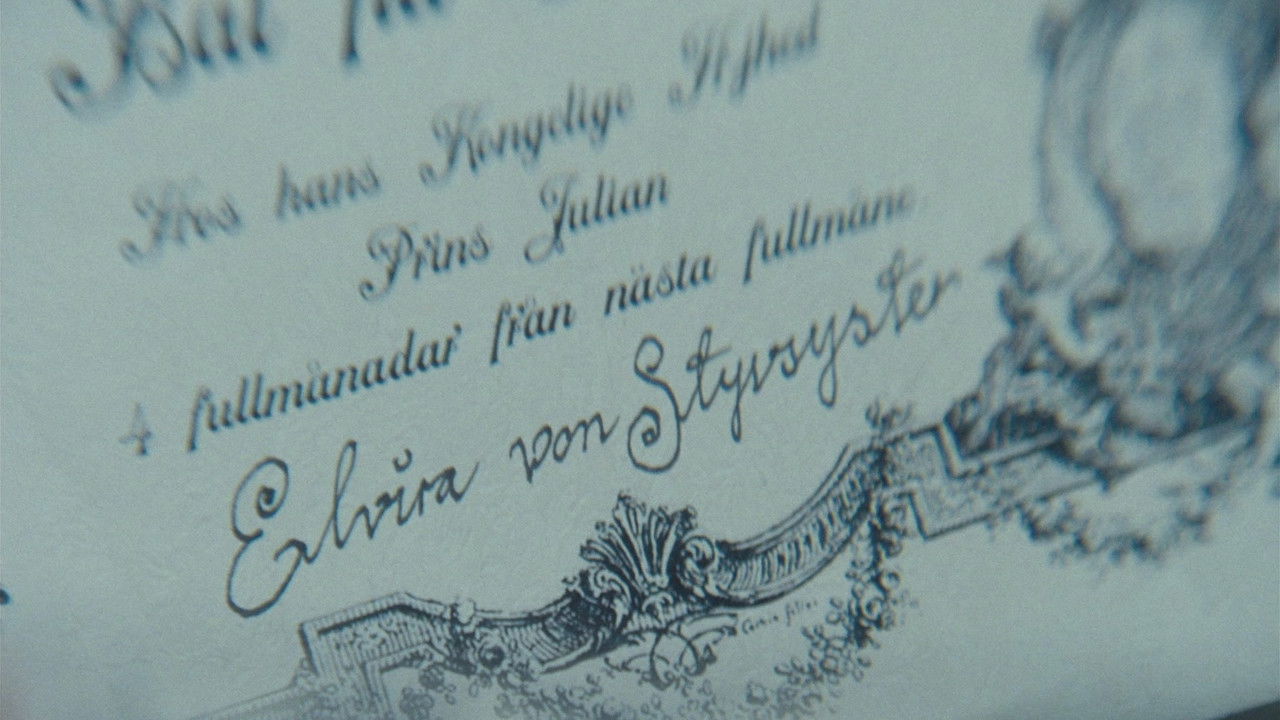 Hos hans Kongelige
Prins Julian
4 fullmånadar från nästa fullmåne
Elvira von Styvsyster